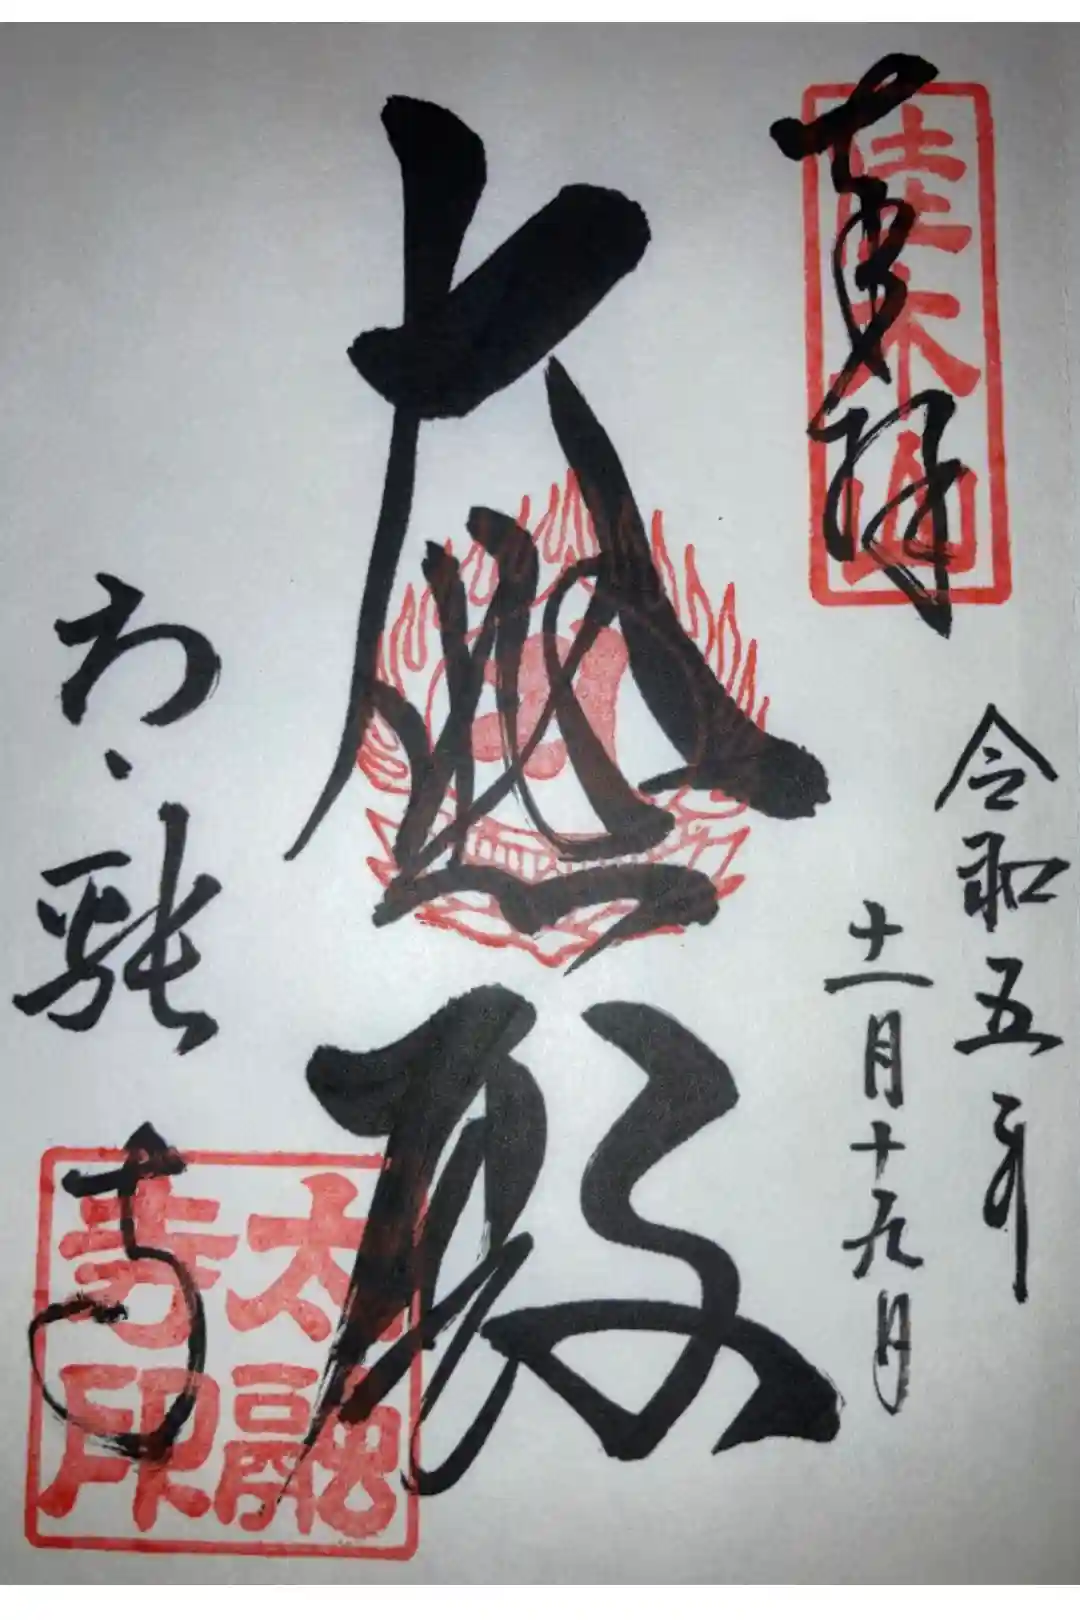 奉拝
佳木山
令和五年
十一月十九日
大悲殿
太融寺
太融寺印